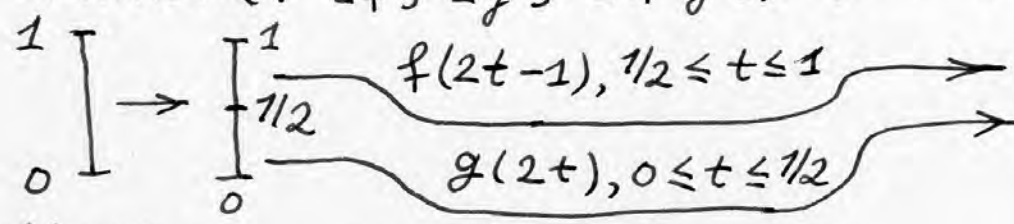 1 1 f(2t-1), 1/2 ≤ t ≤ 1
1/2
0 0 g(2t), 0 ≤ t ≤ 1/2